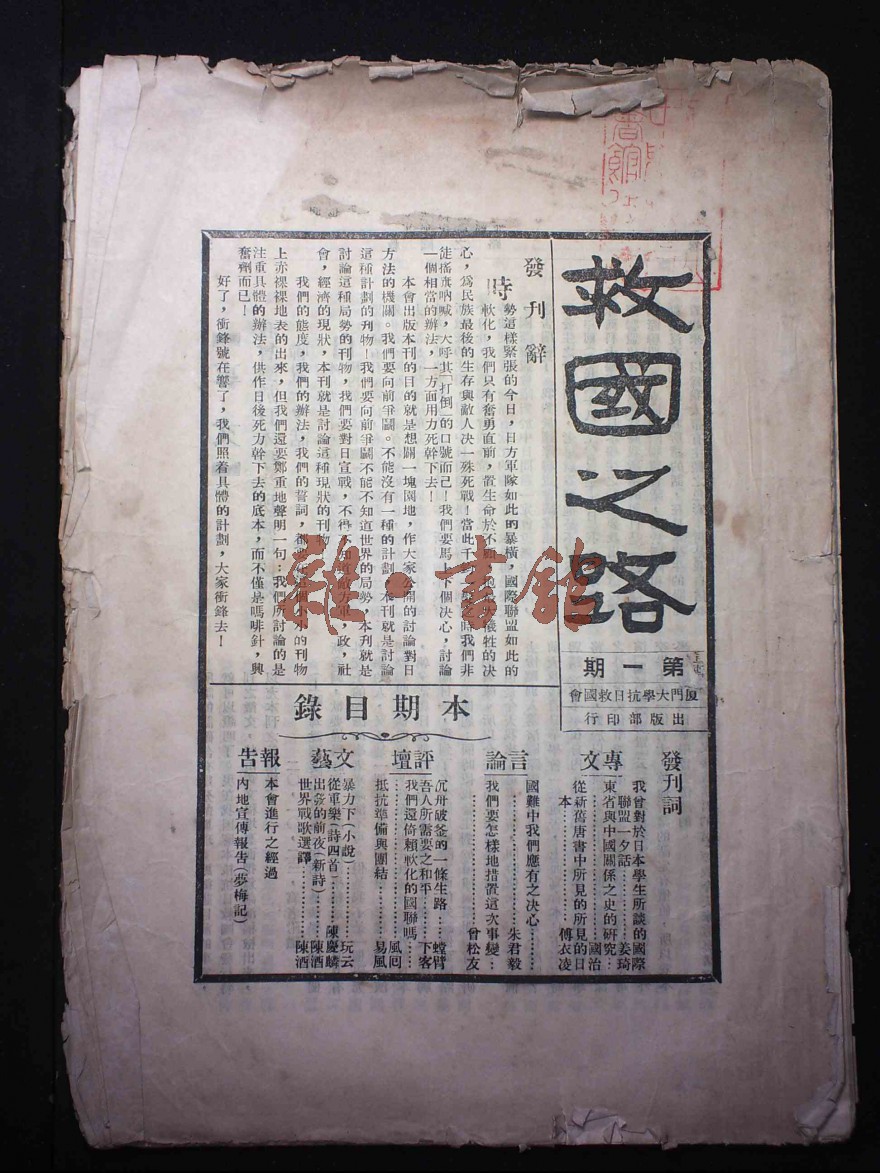 救國之路
第一期
厦門大學抗日救國會
出版部印行
發刊辭
時勢這樣緊張的今日，日方軍隊如此的暴橫，國際聯盟如此的
軟化，我們只有奮勇直前，置生命於不顧，犧牲的决
心，爲民族最後的生存與敵人决一殊死戰！當此千之時我們非
徒搖旗吶喊，大呼其「打倒」的口號而已！我們要馬上下個决心，討論
一個相當的辦法，一方面用力死幹下去！
本會出版本刊的目的就是想闢一塊園地，作大家公開的討論對日
方法的機關。我們要向前爭鬬。不能沒有一種的計劃，本刊就是討論
這種計劃的刊物！我們要向前爭鬬不能不知道世界的局勢，本刊就是
討論這種局勢的刊物，我們要對日宣戰，不得不知道敵方軍，政，社
會，經濟的現狀，本刊就是討論這種現狀的刊物
我們的態度，我們的辦法，我們的誓詞，都在這個小小的刊物
上赤裸裸地表的出來，但我們還要鄭重地聲明一句：我們所討論的是
注重具體的辦法，供作日後死力幹下去的底本，而不僅是嗎啡針，興
奮劑而已！
好了，衝鋒號在響了，我們照着具體的計劃，大家衝鋒去！
本期目錄
發刊詞
專文
我曾對於日本學生所談的國際
聯盟一夕話………姜琦
東省與中國關係之史的研究…國治
從新舊唐書中所見的所見的日
本………傅衣凌
言論
國難中我們應有之决心………朱君毅
我們要怎樣地措置這次事變…曾松友
評壇
沉舟破釜的一條生路……螳臂
吾人所需要之和平……下客
我們還倚賴軟化的國聯嗎……風囘
抵抗準備與團結……易風
文藝
暴力下（小說）………玩云
從軍樂（詩四首）………陳慶麟
出發的前夜（新詩）………陳酒
世界戰歌選譯………陳酒
報告
本會進行之經過
內地宣傳報告（夢梅記）
雜·書館